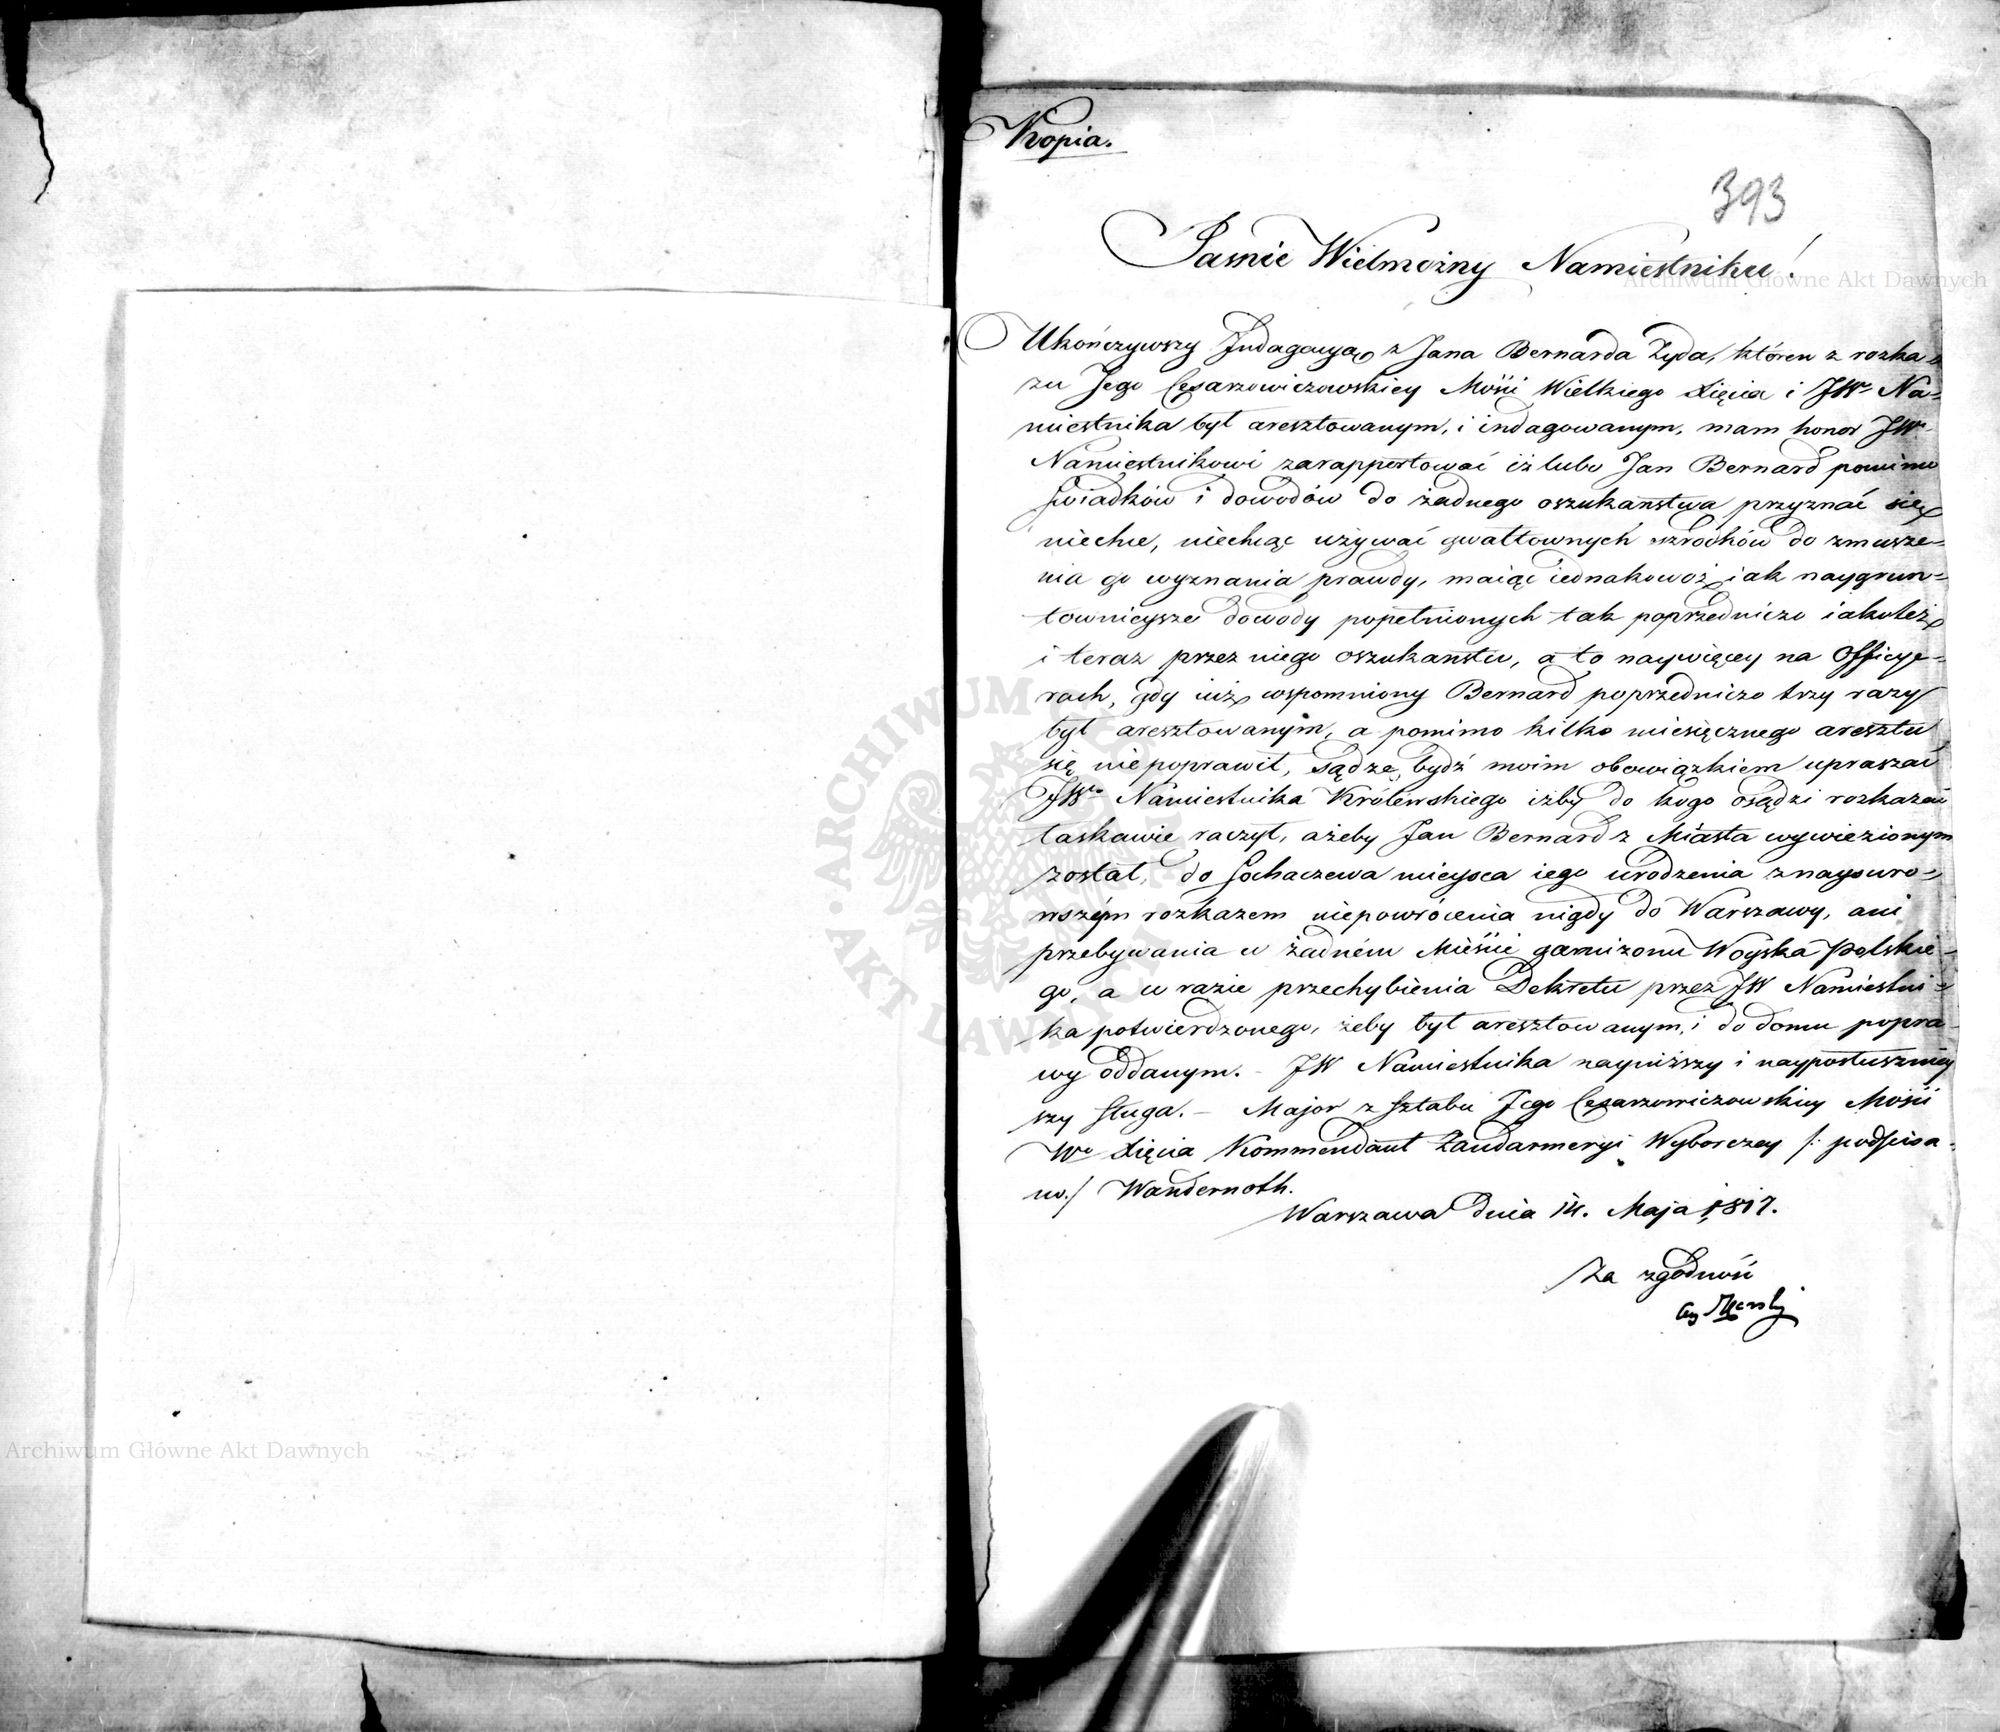 Kopia.
393
Jasnie Wielmożny Namiestniku!
Ukończywszy Indagacyą z Jana Bernarda Żyda, któren z rozka=
zu Jego Cesarzowiczowskiey Mości Wielkiego Xięcia i JWo Na=
miestnika był aresztowanym, i indagowanym, mam honor JW
Namiestnikowi zarapportować iż lubo Jan Bernard pomimo
świadków i dowodów do żadnego oszukaństwa przyznać się
niechce, niechcąc używać gwałtownych szrodków do zmusze=
nia go wyznania prawdy, maiąc iednakowoż iak naygrun=
townieysze dowody popełnionych tak poprzedniczo iakoteż
i teraz przez niego oszukaństw, a to naywięcey na Officye=
rach, gdy iuż wspomniony Bernard poprzedniczo trzy razy
był aresztowanym, a pomimo kilko miesięcznego aresztu
się niepoprawił, sądzę bydź moim obowiązkiem upraszać
JWo Namiestnika Królewskiego iżby do kogo osądzi rozkazać
łaskawie raczył, ażeby Jan Bernard z Miasta wywiezionym
został, do Sochaczewa mieysca iego urodzenia z naysuro=
wszym rozkazem niepowrócenia nigdy do Warszawy, ani
przebywania w żadném Mieście garnizonu Woyska Polskie=
go, a w razie przechybienia Dekretu przez JW Namiestni=
ka potwierdzonego, żeby był aresztowanym, i do domu popra=
wy oddanym. - JW Namiestnika nayniższy i nayposłuszniey
szy sługa. - Major z Sztabu Jego Cesarzowiczowskiey Mości
Wo Xięcia Kommendant Żandarmeryi Wyborczey /: podpisa=
no./ Wandernoth.
Warszawa dnia 14. Maja 1817.
Za zgodność
Archiwum Główne Akt Dawnych
Archiwum Główne Akt Dawnych